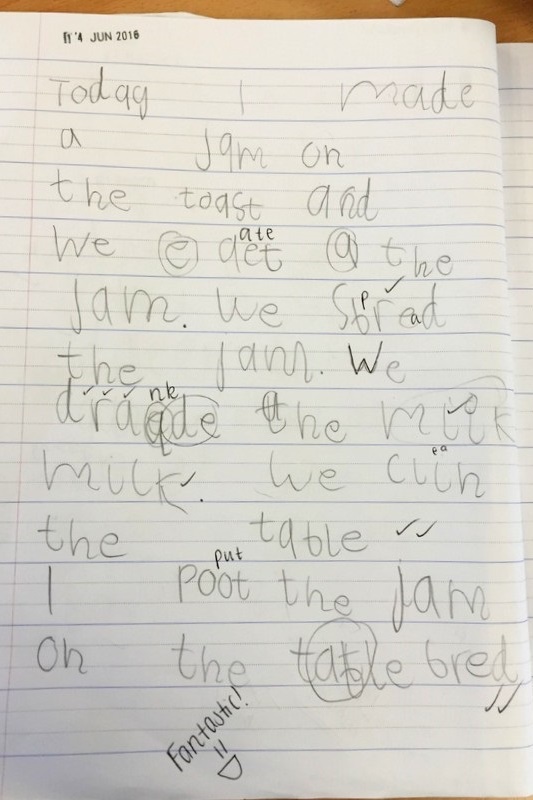 14 JUN 2016
Today I made
a jam on
the toast and
ate
We e aet a the
jam. We Spread
the jam. We
nk
the
milk. We
ea
cliin
the table
put
I Poot the Jam
on the table bred
Fantastic!